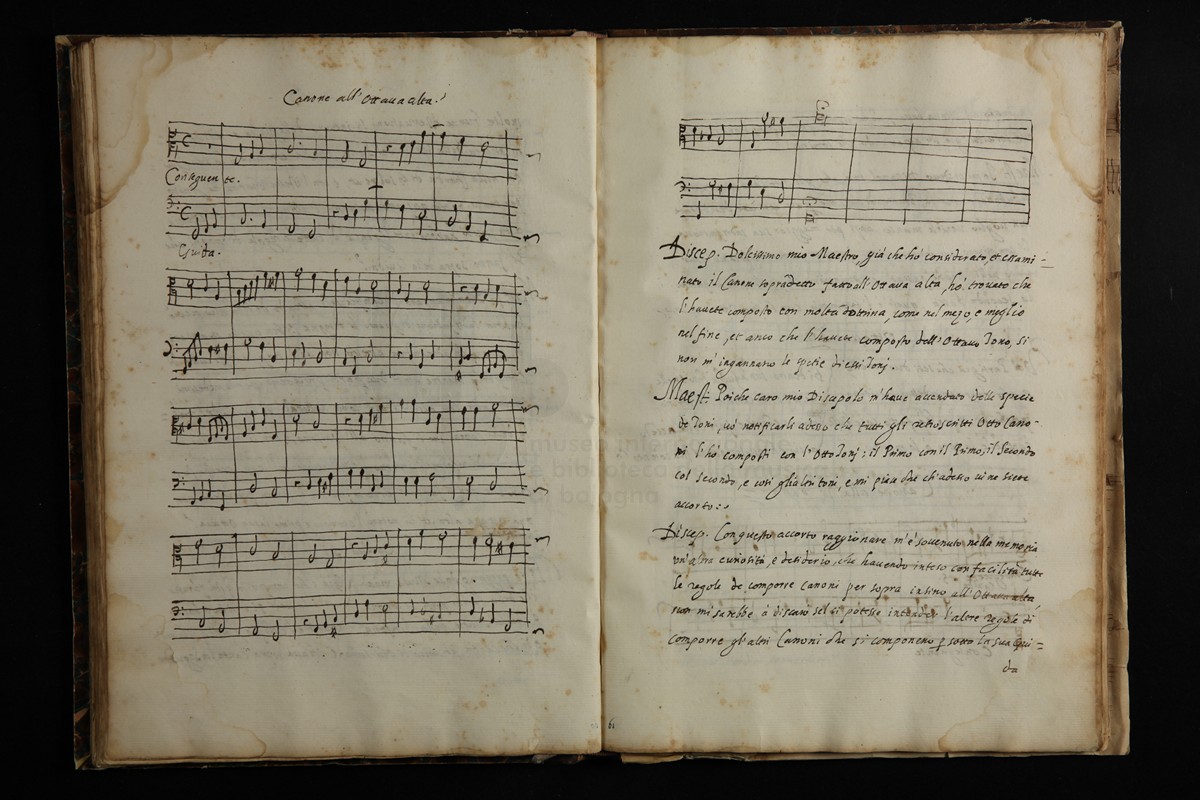 Canone all' Ottava alta.
Conseguente.
Guida.
Discep. Dolcissimo mio Maestro, già che hò considerato, et esami=
nato il Canone sopradetto fatto all' Ottava alta, hò trovato che
l'havete composto con molta dotrina, come nel mezo, e meglio
nel fine, et anco che l'havete composto dell' Ottavo Tono, si
non m'ingannano le spetie di essi Tonj.
Maest. Poiche caro mio Discepolo v'have accendato delle specie
de Toni, vò notificarli adesso che tutti gli retroscritti Otto Cano-
ni l'hò composti con l'Otto Tonj: il Primo con il Primo, il Secondo
col secondo, e cosi gli altri toni, e mi piace che di adesso vi ne siete
accorto:
Discep. Con questo accorto raggionare m'è sovenuto nella memoria
un'altra curiosità, e desiderio, che havendo inteso con facilità tutte
le regole de comporre Canoni per sopra insino all' Ottava alta
non mi sarebbe à discaro se si potesse intender l'altre regole di
comporre gl'altri Canoni che si componeno p sotto la sua Gui=
da
61
museo internazionale
e biblioteca
di bologna